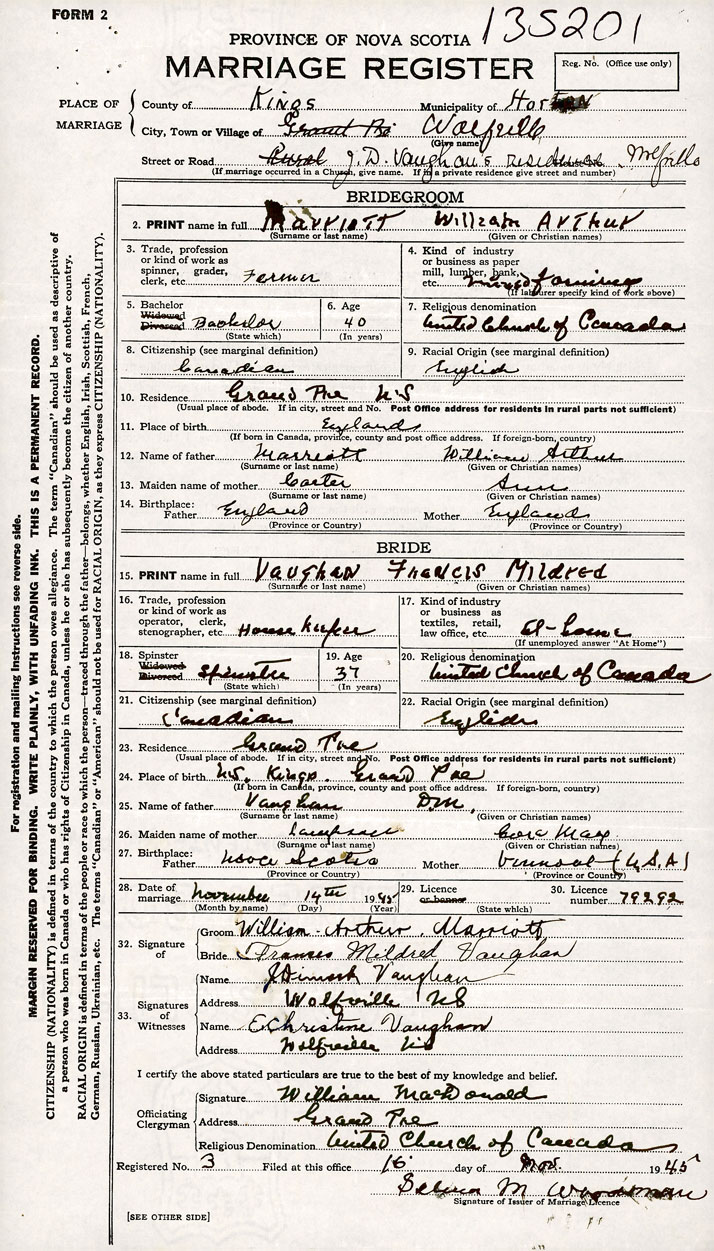 FORM 2
135201
PROVINCE OF NOVA SCOTIA
MARRIAGE REGISTER
Reg. No. (Office use only)
PLACE OF MARRIAGE
County of Kings Municipality of Horton
City, Town or Village of Grand Pré Wolfville
(Give name)
Street or Road Rural J. D. Vaughan's residence Wolfville
(If marriage occurred in a Church, give name. If in a private residence give street and number)
BRIDEGROOM
2. PRINT name in full Marriott William Arthur
(Surname or last name) (Given or Christian names)
3. Trade, profession or kind of work as spinner, grader, clerk, etc. Farmer
4. Kind of industry or business as paper mill, lumber, bank, etc. mixed farming
(If labourer specify kind of work above)
5. Bachelor Widowed Divorced Bachelor
(State which)
6. Age 40
(In years)
7. Religious denomination
United Church of Canada
8. Citizenship (see marginal definition)
Canadian
9. Racial Origin (see marginal definition)
English
10. Residence Grand Pre N S
(Usual place of abode. If in city, street and No. Post Office address for residents in rural parts not sufficient)
11. Place of birth England
(If born in Canada, province, county and post office address. If foreign-born, country)
12. Name of father Marriott William Arthur
(Surname or last name) (Given or Christian names)
13. Maiden name of mother Carter Ann
(Surname or last name) (Given or Christian names)
14. Birthplace: Father England Mother England
(Province or Country) (Province or Country)
BRIDE
15. PRINT name in full Vaughan Francis Mildred
(Surname or last name) (Given or Christian names)
16. Trade, profession or kind of work as operator, clerk, stenographer, etc. House keeper
17. Kind of industry or business as textiles, retail, law office, etc. at-home
(If unemployed answer "At Home")
18. Spinster Widowed Divorced Spinster
(State which)
19. Age 37
(In years)
20. Religious denomination
United Church of Canada
21. Citizenship (see marginal definition)
Canadian
22. Racial Origin (see marginal definition)
English
23. Residence Grand Pre
(Usual place of abode. If in city, street and No. Post Office address for residents in rural parts not sufficient)
24. Place of birth N.S. Kings. Grand Pre
(If born in Canada, province, county and post office address. If foreign-born, country)
25. Name of father Vaughan
(Surname or last name) (Given or Christian names)
26. Maiden name of mother Cora May
(Surname or last name) (Given or Christian names)
27. Birthplace: Father Nova Scotia Mother Vermont (U.S.A)
(Province or Country) (Province or Country)
28. Date of marriage November 14th 1945
(Month by name) (Day) (Year)
29. Licence or banns
(State which)
30. Licence number 79292
32. Signature of
Groom William Arthur Marriott
Bride Frances Mildred Vaughan
33. Signatures of Witnesses
Name J Dimock Vaughan
Address Wolfville NS
Name E Christine Vaughan
Address Wolfville NS
I certify the above stated particulars are true to the best of my knowledge and belief.
Officiating Clergyman
Signature William MacDonald
Address Grand Pre
Religious Denomination United Church of Canada
Registered No. 3 Filed at this office 16 day of Nov. 1945
M
Signature of Issuer of Marriage Licence
[SEE OTHER SIDE]
For registration and mailing instructions see reverse side.
MARGIN RESERVED FOR BINDING. WRITE PLAINLY, WITH UNFADING INK. THIS IS A PERMANENT RECORD.
CITIZENSHIP (NATIONALITY) is defined in terms of the country to which the person owes allegiance. The term "Canadian" should be used as descriptive of
a person who was born in Canada or who has rights of Citizenship in Canada, unless he or she has subsequently become the citizen of another country.
RACIAL ORIGIN is defined in terms of the people or race to which the person—traced through the father—belongs, whether English, Irish, Scottish, French,
German, Russian, Ukrainian, etc. The terms "Canadian" or "American" should not be used for RACIAL ORIGIN, as they express CITIZENSHIP (NATIONALITY).